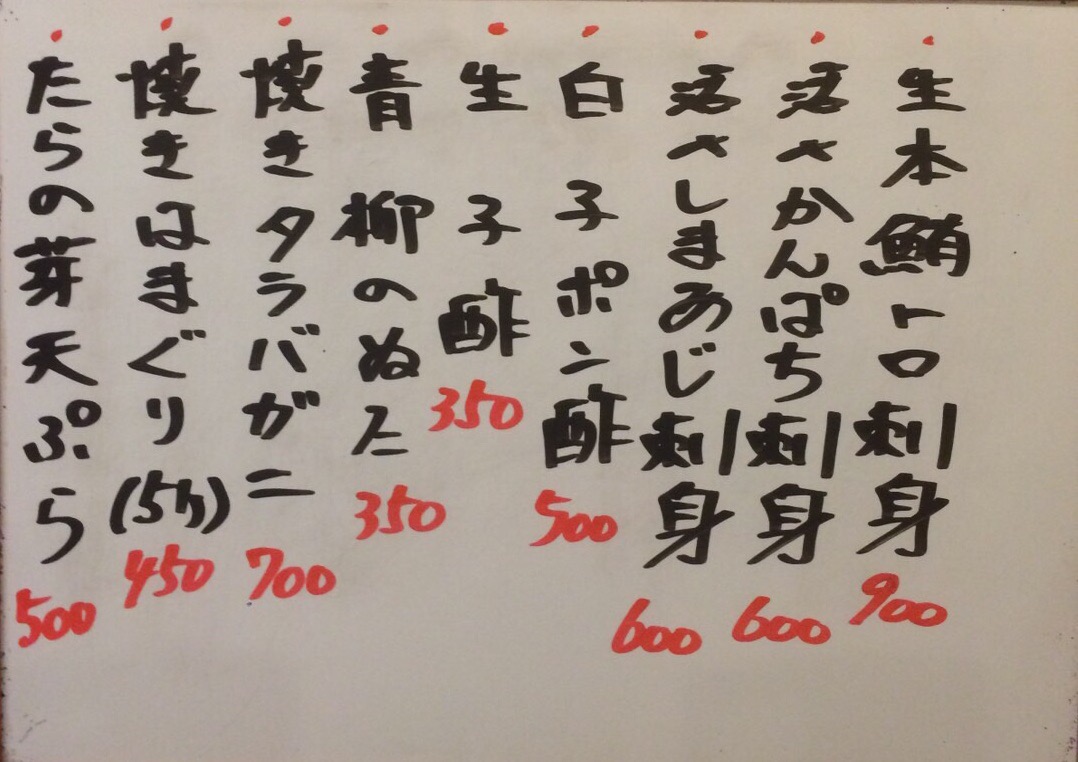 ・生本鮪トロ刺身 900
・活〆かんぱち刺身 600
・活〆しまあじ刺身 600
・白子ポン酢 500
・生子酢 350
・青柳のぬた 350
・焼きタラバガニ 700
・焼きはまぐり(5ケ) 450
・たらの芽天ぷら 500